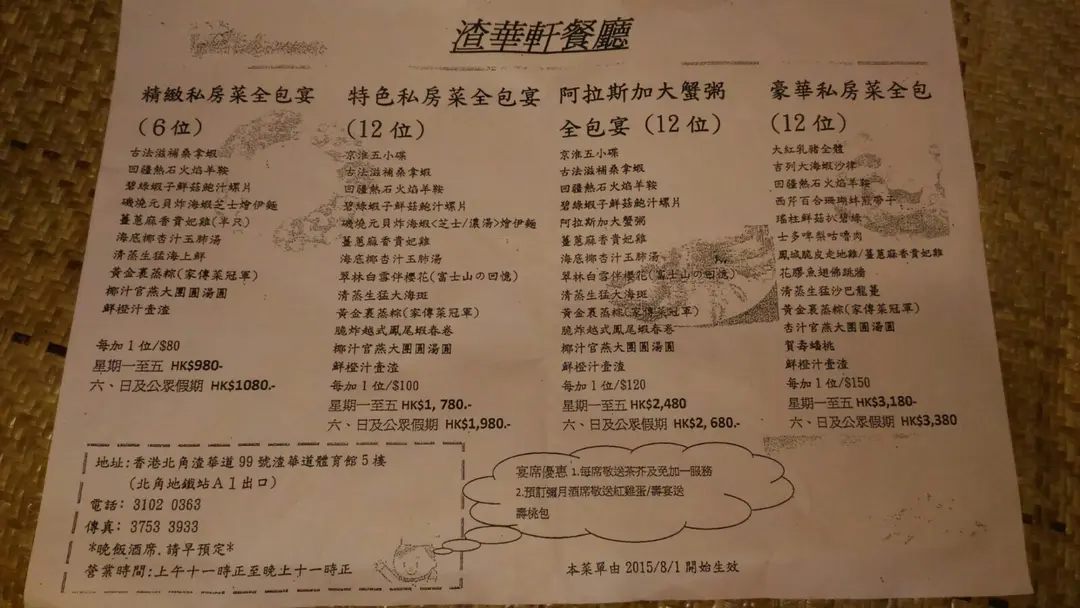 渣華軒餐廳
精緻私房菜全包宴
(6位)
古法滋補桑拿蝦
回疆熱石火焰羊鞍
碧綠蝦子鮮菇鮑汁螺片
磯燒元貝炸海蝦芝士燴伊麵
薑蔥麻香貴妃雞(半只)
海底椰杏汁玉肺湯
清蒸生猛海上鮮
黃金裹蒸粽(家傳菜冠軍)
椰汁官燕大團圓湯圓
鮮橙汁壹渣
每加1位/$80
星期一至五 HK$980-
六、日及公眾假期 HK$1080.-
特色私房菜全包宴
(12位)
京淮五小碟
古法滋補桑拿蝦
回疆熱石火焰羊鞍
碧綠蝦子鮮菇鮑汁螺片
磯燒元貝炸海蝦<芝士/濃湯>燴伊麵
薑蔥麻香貴妃雞
海底椰杏汁玉肺湯
翠林白雪伴櫻花(富士山の回憶)
清蒸生猛大海斑
黃金裹蒸粽(家傳菜冠軍)
脆炸越式鳳尾蝦春卷
椰汁官燕大團圓湯圓
鮮橙汁壹渣
每加1位/$100
星期一至五 HK$1,780.-
六、日及公眾假期 HK$1,980.-
阿拉斯加大蟹粥
全包宴(12位)
京淮五小碟
古法滋補桑拿蝦
回疆熱石火焰羊鞍
碧綠蝦子鮮菇鮑汁螺片
阿拉斯加大蟹粥
薑蔥麻香貴妃雞
海底椰杏汁玉肺湯
翠林白雪伴櫻花(富士山の回憶)
清蒸生猛大海斑
黃金裹蒸粽(家傳菜冠軍)
脆炸越式鳳尾蝦春卷
椰汁官燕大團圓湯圓
鮮橙汁壹渣
每加1位/$120
星期一至五 HK$2,480
六、日及公眾假期 HK$2,680.-
豪華私房菜全包
(12位)
大紅乳豬全體
吉列大海蝦沙律
回疆熱石火焰羊鞍
西芹百合珊瑚蚌煎帶子
瑤柱鮮菇扒碧綠
士多啤梨咕嚕肉
鳳城脆皮走地雞/薑蔥麻香貴妃雞
花膠魚翅佛跳牆
清蒸生猛沙巴龍躉
黃金裹蒸粽(家傳菜冠軍)
杏汁官燕大團圓湯圓
賀壽蟠桃
鮮橙汁壹渣
每加1位/$150
星期一至五 HK$3,180-
六、日及公眾假期 HK$3,380
地址:香港北角渣華道99號渣華道體育館5樓
(北角地鐵站A1出口)
電話: 3102 0363
傳真: 3753 3933
*晚飯酒席.請早預定*
營業時間:上午十一時正至晚上十一時正
宴席優惠 1.每席敬送茶芥及免加一服務
2.預訂彌月酒席敬送紅雞蛋/壽宴送
壽桃包
本菜單由2015/8/1開始生效